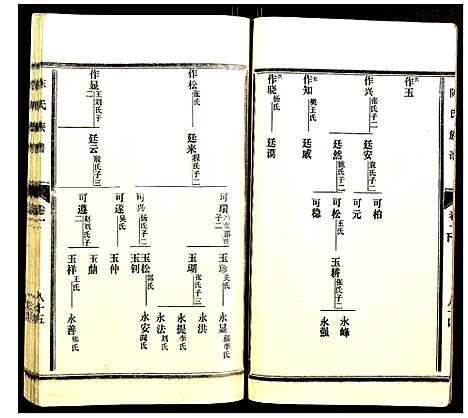 陳氏族譜
卷一下
作玉
作興
張氏子二
作知
樊王氏
作驍
楊氏
廷安
袁氏子二
廷然
魏氏子二
廷威
廷漠
可柏
可元
可松
王氏
可穩
玉耕
張氏子二
永峰
永强
作松
張氏
作显
王刘氏子二
廷来
程氏子二
廷云
殷氏子三
可瑞
子二
可兴
杨氏子二
可遂
吴氏
可遵
赵刘氏子二
玉珍
关氏
玉瑚
张氏子三
玉松
郭氏
玉钊
玉仲
玉鼎
玉祥
王氏
永显
郝李氏
永洪
永提
李氏
永法
刘氏
永安
阎氏
永善
陈氏族谱
卷一
八十五